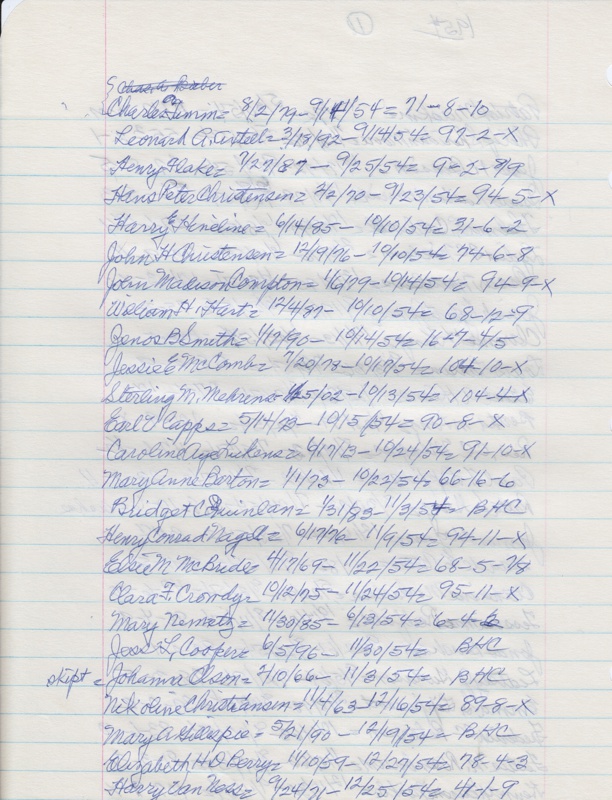 1954 ①
Charles Timm = 8/2/79 - 9/14/54 = 71-8-10
Leonard = 3/18/92 - 9/14/54 = 97-2-X
Henry Flake = 7/27/87 - 9/25/54 = 9-2-
Hans Peter Christensen = 2/2/70 - 9/23/54 = 94-5-X
Harry E Hineline = 6/14/85 - 10/10/54 = 31-6-2
John H Christensen = 12/19/76 - 10/10/54 = 74-6-8
John Madison Compton = 1/6/79 - 10/14/54 = 94-9-X
William H. Hart = 12/4/87 - 10/10/54 = 68-12-9
Zenos B Smith = 1/17/90 - 10/14/54 = 16-7-4/5
Jessie E McComb = 7/20/79 - 10/17/54 = 104-10-X
Sterling M. = 1/25/02 - 10/13/54 = 104-4-X
Earl V Capps = 5/14/79 - 10/15/54 = 90-8-X
Caroline Lickens = - 10/24/54 = 91-10-X
Mary Anne Barton = 1/1/73 - 10/22/54 = 66-16-6
Bridget C Quinlan = 1/31/83 - 11/3/54 = BHC
Henry Conrad Nagel = 6/17/76 - 11/9/54 = 94-11-X
Elsie M McBride = 4/17/69 - 11/22/54 = 68-5-7/8
Clara F. Crowdy = 10/12/75 - 11/24/54 = 95-11-X
Mary Nemetz = 11/30/85 - 6/13/54 = 6-4-
Jess L. Cooper = 6/5/96 - 11/30/54 = BHC
skipt = Johanna Olson = 2/10/66 - 11/3/54 = BHC
Nikoline Christiansen = 11/4/63 - 12/16/54 = 89-8-X
Mary A Gillespie = 5/21/90 - 12/19/54 = BHC
Elizabeth H D Perry = 11/10/59 - 12/27/54 = 78-4-3
Harry Van Ness = 9/24/71 - 12/25/54 = 41-1-9